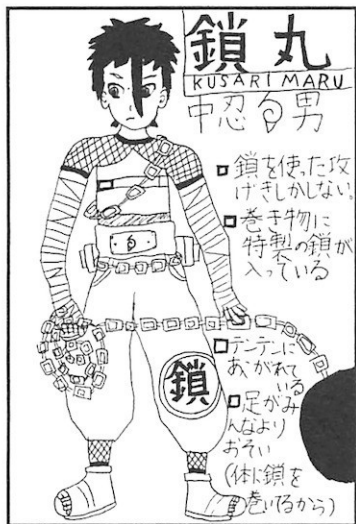 鎖丸
KUSARI MARU
中忍 男
◻鎖を使った攻
げきしかしない。
◻巻き物に
特製の鎖が
入っている
◻テンテンに
あこがれて
いる
◻足がみ
んなより
おそい
(体に鎖を
巻いてるから)
鎖